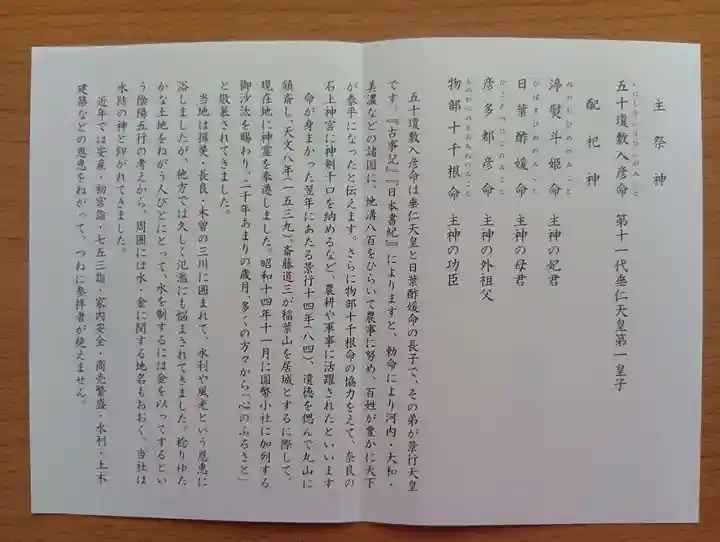 主祭神
いにしきいりひこのみこと
五十瓊敷入彦命　第十一代垂仁天皇第一皇子
配祀神
ぬのしひめのみこと
渟熨斗姫命　主神の妃君
ひばすひめのみこと
日葉酢媛命　主神の母君
ひこたつひこのみこと
彦多都彦命　主神の外祖父
もののべのとおちねのみこと
物部十千根命　主神の功臣
五十瓊敷入彦命は垂仁天皇と日葉酢媛命の長子で、その弟が景行天皇
です。『古事記』『日本書紀』によりますと、勅命により河内・大和・
美濃などの諸国に、地溝八百をひらいて農事に努め、百姓が豊かに天下
が泰平になったと伝えます。さらに物部十千根命の協力をえて、奈良の
石上神宮に神剣千口を納めるなど、農耕や軍事に活躍されたといいます
命が身まかった翌年にあたる景行十四年(八四)、遺徳を偲んで丸山に
鎮斎し、天文八年(一五三九)、斎藤道三が稲葉山を居城とするに際して、
現在地に神霊を奉遷しました。昭和十四年十一月に国幣小社に加列する
御沙汰を賜わり、二千年あまりの歳月、多くの方々から「心のふるさと」
と敬慕されてきました。
当地は揖斐・長良・木曽の三川に囲まれて、水利や風光という恩恵に
浴しましたが、他方では久しく氾濫にも悩まされてきました。稔りゆた
かな土地をねがう人びとにとって、水を制するには金を以ってするとい
う陰陽五行の考えから、周囲には水・金に関する地名もおおく、当社は
水防の神と仰がれてきました。
近年では安産・初宮詣・七五三詣・家内安全・商売繁盛・水利・土木
建築などの恩恵をねがって、つねに参拝者が絶えません。